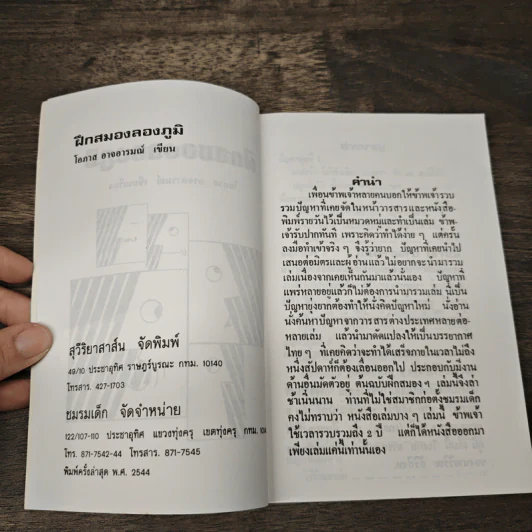 ฝึกสมองลองภูมิ
โอภาส อาจอารมณ์ เขียน
สุวีริยาสาส์น จัดพิมพ์
49/10 ประชาอุทิศ ราษฎร์บูรณะ กทม. 10140
โทรสาร. 427-1703
ชมรมเด็ก จัดจำหน่าย
122/107-110 ประชาอุทิศ แขวงทุ่งครุ เขตทุ่งครุ กทม.
โทร. 871-7542-44 โทรสาร. 871-7545
พิมพ์ครั้งล่าสุด พ.ศ. 2544
คำนำ
เพื่อนข้าพเจ้าหลายคนบอกให้ข้าพเจ้ารวบ
รวมปัญหาที่เคยจัดในหน้าวารสารและหนังสือ
พิมพ์รายวันไว้เป็นหมวดหมู่และทำเป็นเล่ม ข้าพ
เจ้ารับปากทันที เพราะคิดว่าทำได้ง่าย ๆ แต่ครั้น
ลงมือทำเข้าจริง ๆ จึงรู้ว่ายาก ปัญหาที่เคยนำไป
เสนอต่อมิตรและผู้อ่านแล้ว ไม่อยากจะนำมารวม
เล่มเนื่องจากเคยเห็นกันมาแล้วนั่นเอง ปัญหาที่
แพร่หลายอยู่แล้วก็ไม่ต้องการนำมารวมเล่ม นี่เป็น
ปัญหายุ่งยากต้องทำให้นั่งคิดปัญหาใหม่ นั่งอ่าน
นั่งค้นหาปัญหาจากวารสารต่างประเทศหลายต่อ-
หลายเล่ม แล้วนำมาดัดแปลงให้เป็นบรรยากาศ
ไทย ๆ ที่เคยคิดว่าจะทำได้เสร็จภายในเวลาไม่ถึง
หนึ่งสัปดาห์ก็ต้องเลื่อนออกไป ประกอบกับมีงาน
ด้านอื่นมัดตัวอยู่ ต้นฉบับฝึกสมอง ๆ เล่มนี้จึงล่า
ช้าเนิ่นนาน ท่านที่ไม่ใช่สมาชิกก่อตั้งชมรมเด็ก
คงไม่ทราบว่า หนังสือเล่มบาง ๆ เล่มนี้ ข้าพเจ้า
ใช้เวลารวบรวมถึง 2 ปี แต่ก็ได้หนังสือออกมา
เพียงเล่มแค่นี้เท่านั้นเอง